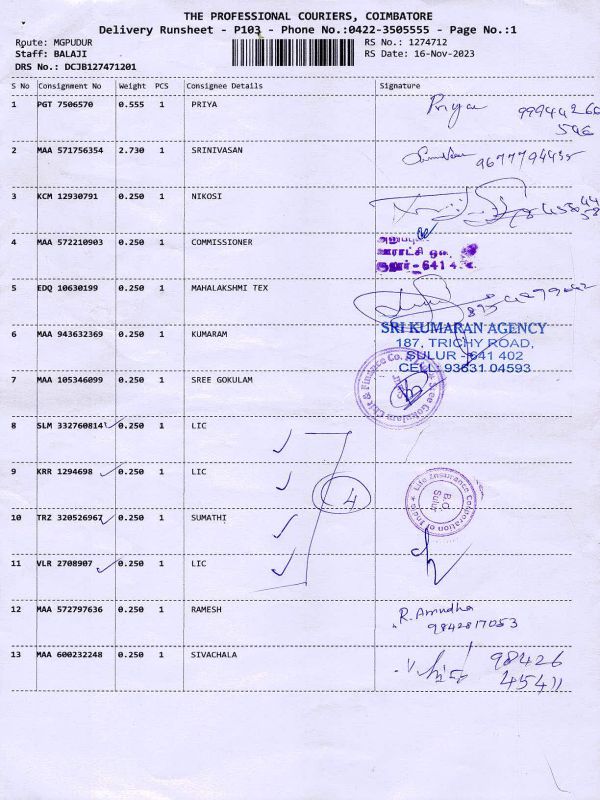 THE PROFESSIONAL COURIERS, COIMBATORE
Delivery Runsheet - P103 - Phone No.:0422-3505555 - Page No.:1
Route: MGPUDUR RS No.: 1274712
Staff: BALAJI RS Date: 16-Nov-2023
DRS No.: DCJB127471201
S No Consignment No Weight PCS Consignee Details Signature
1 PGT 7506570 0.555 1 PRIYA Priya 99944266
596
2 MAA 571756354 2.730 1 SRINIVASAN
3 KCM 12930791 0.250 1 NIKOSI
4 MAA 572210903 0.250 1 COMMISSIONER
சூலூர் - 641 4
5 EDQ 10630199 0.250 1 MAHALAKSHMI TEX
6 MAA 943632369 0.250 1 KUMARAM
SRI KUMARAN AGENCY
187, TRICHY ROAD,
SULUR - 641 402
CELL: 93631 04593
7 MAA 105346099 0.250 1 SREE GOKULAM
Sree Gokulam Chit & Finance Co.
8 SLM 332760814 0.250 1 LIC
9 KRR 1294698 0.250 1 LIC
4
Life Insurance Corporation of India
B.O.
Sulur
10 TRZ 320526967 0.250 1 SUMATHI
11 VLR 2708907 0.250 1 LIC
12 MAA 572797636 0.250 1 RAMESH R. Amudha
9842817053
13 MAA 600232248 0.250 1 SIVACHALA 98426
45411